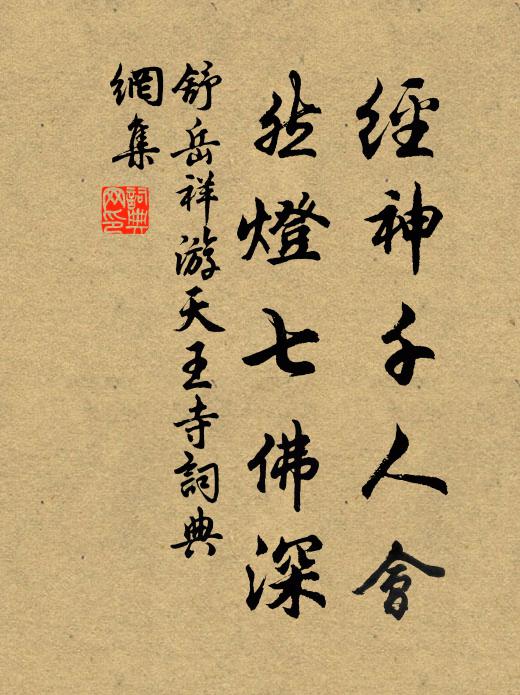 經神千人會
然燈七佛深
舒岳祥游天王寺詞典
網集
詞典
網印